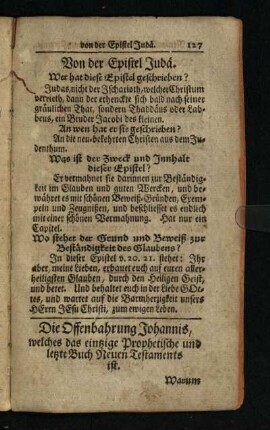 von der Epistel Judä. 127
Von der Epistel Judä.
Wer hat diese Epistel geschrieben?
Judas, nicht der Ischariath, welcher Christum
verrieth, dann der erhenckt sich bald nach seiner
gräulichen That, sondern Thaddäus oder Leb-
beus, ein Bruder Jacobi des kleinen.
An wen hat er sie geschrieben?
An die neu-bekehrten Christen aus dem Jü-
denthum.
Was ist der Zweck und Innhalt
dieser Epistel?
Er vermahnet sie darinnen zur Beständig-
keit im Glauben und guten Wercken, und be-
währet es mit schönen Beweiß-Gründen, Exem-
peln und Zeugnissen, und beschliesset es endlich
mit einer schönen Vermahnung. Hat nur ein
Capitel.
Wo stehet der Grund und Beweiß zur
Beständigkeit des Glaubens?
In dieser Epistel v. 20. 21. stehet: Ihr
aber, meine Lieben, erbauet euch auf euren aller-
heiligsten Glauben, durch den Heiligen Geist,
und betet. Und behaltet euch in der Liebe GOt-
tes, und wartet auf die Barmhertzigkeit unsers
HErrn JEsu Christi, zum ewigen Leben.
Die Offenbahrung Johannis,
welches das eintzige Prophetische und
letzte Buch Neuen Testaments
ist.
Warum